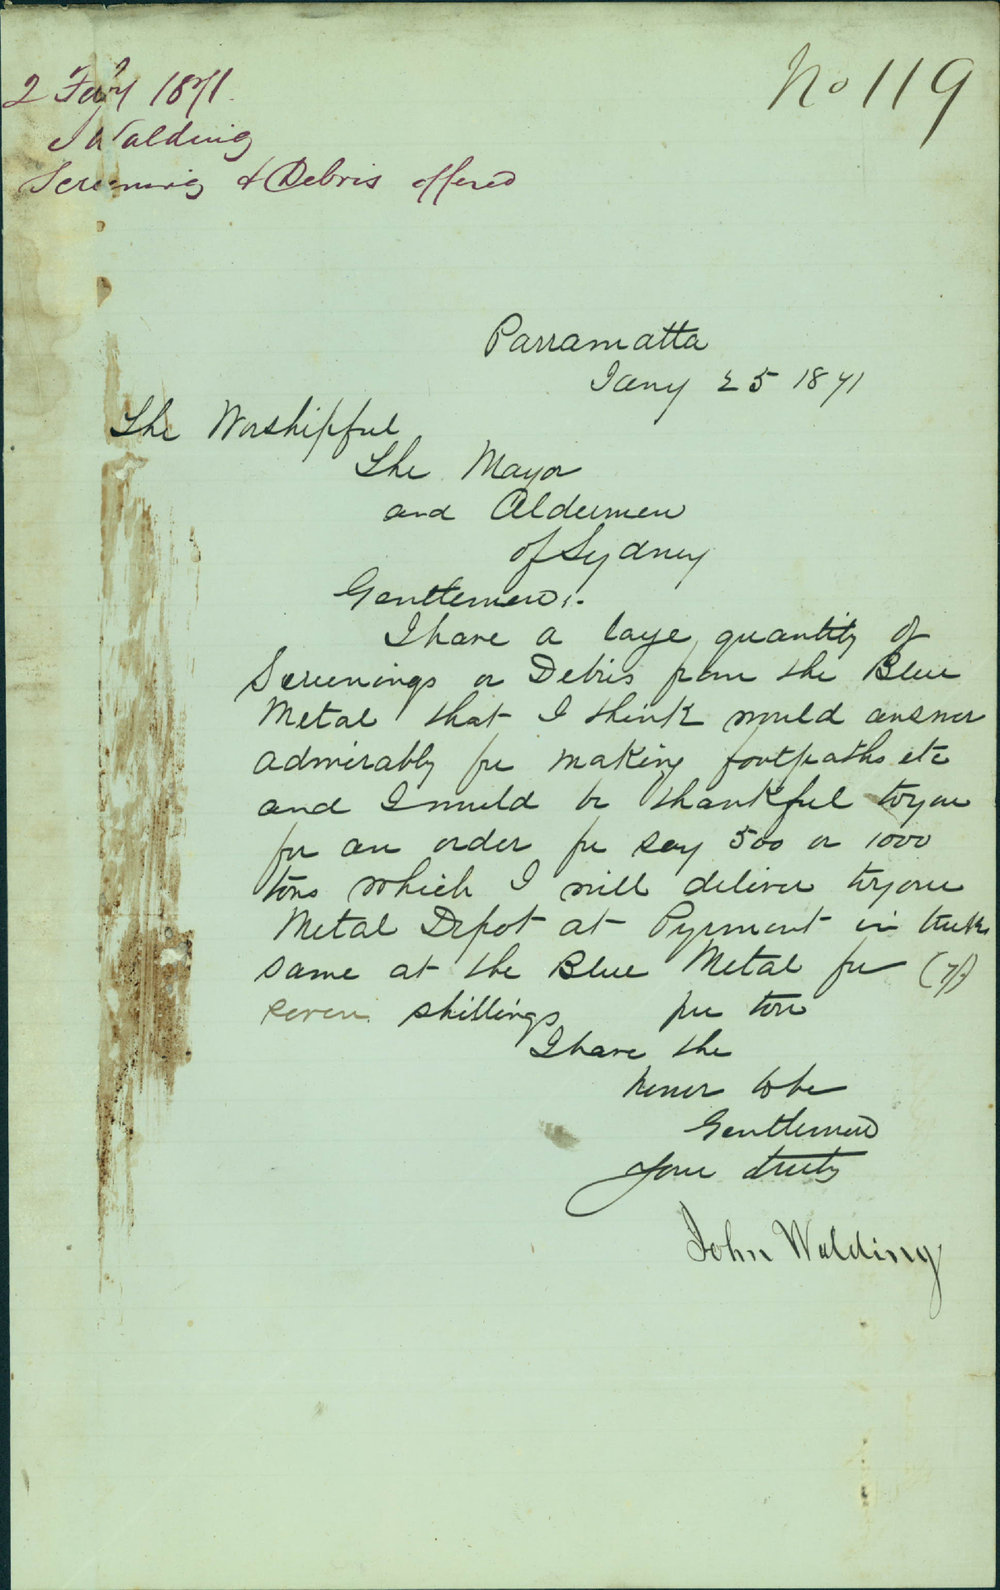 No 119
2 Feby 1871.
J Walding
Screening & Debris offered
Parramatta
Jany 25 1871
The Worshipful
The Mayor
and Aldermen
of Sydney
Gentlemen,-
I have a large quantity of
Screenings or Debris from the Blue
Metal that I think would answer
admirably for making footpaths etc
and I would be thankful to you
for an order for say 500 or 1000
tons which I will deliver to your
Metal Depot at Pyrmont in trucks
same at the Blue Metal for (7/)
seven shillings per ton
I have the
honor to be
Gentlemen
Your truly
John Walding